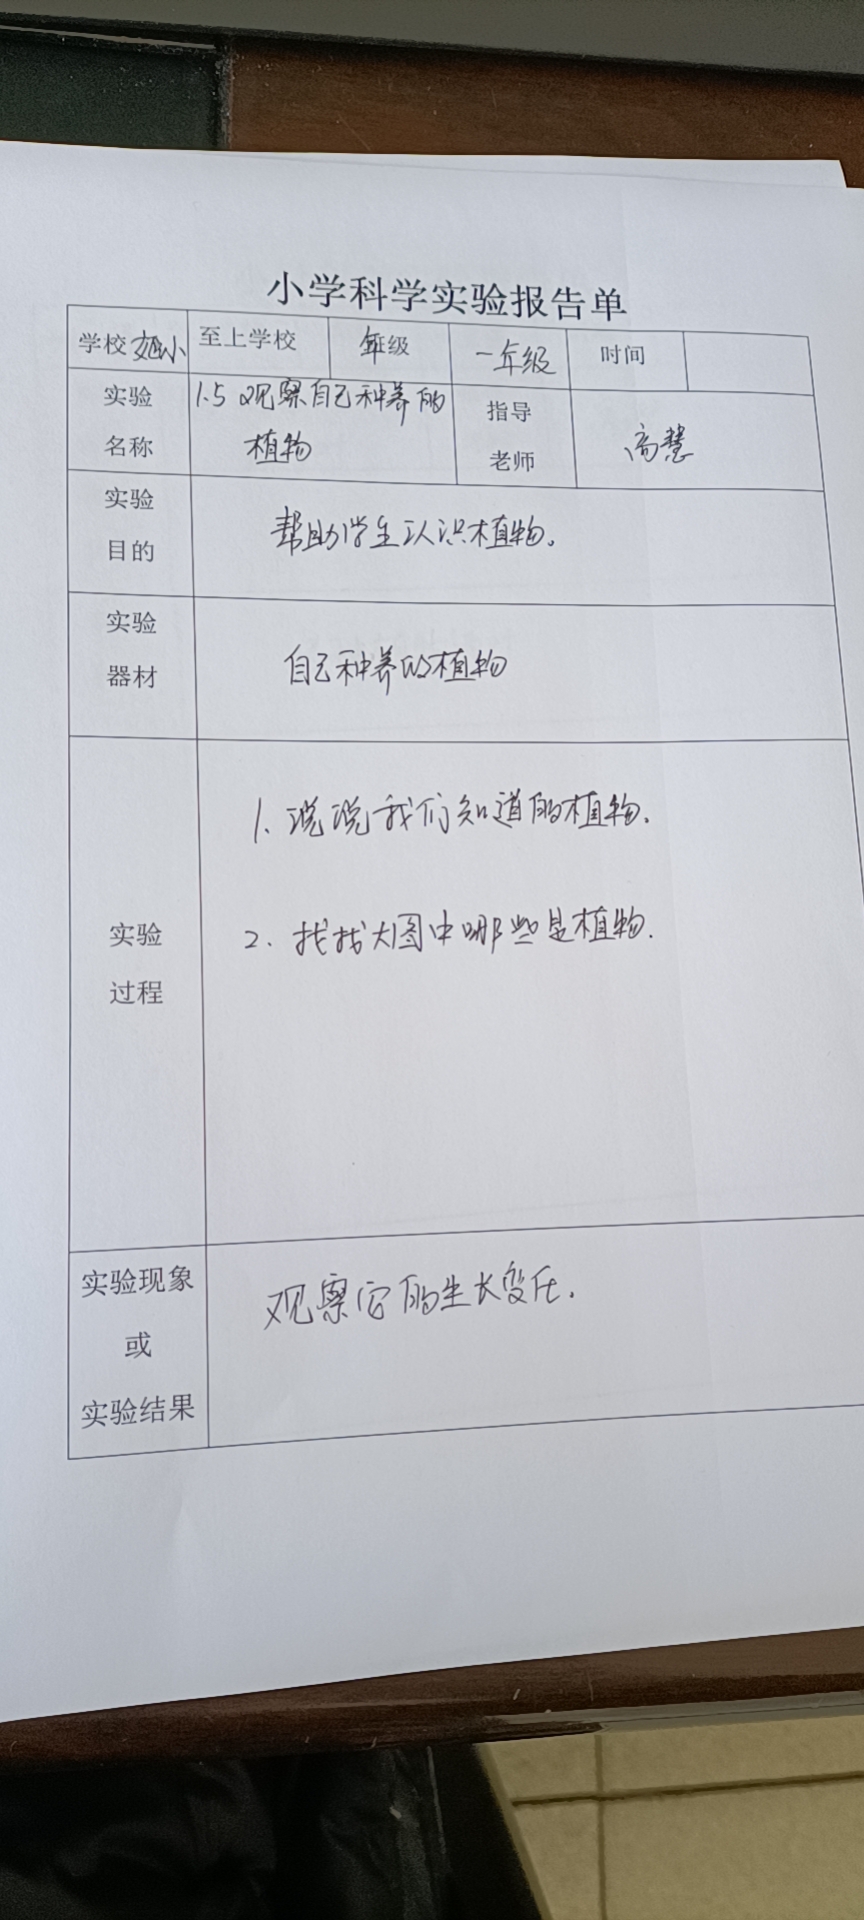 小学科学实验报告单
学校 小 至上学校 年级 一年级 时间
实验名称 1.5 观察自己种养的植物 指导老师 高慧
实验目的 帮助学生认识植物。
实验器材 自己种养的植物
实验过程
1. 说说我们知道的植物.
2. 找找大图中哪些是植物.
实验现象或实验结果 观察它的生长变化.